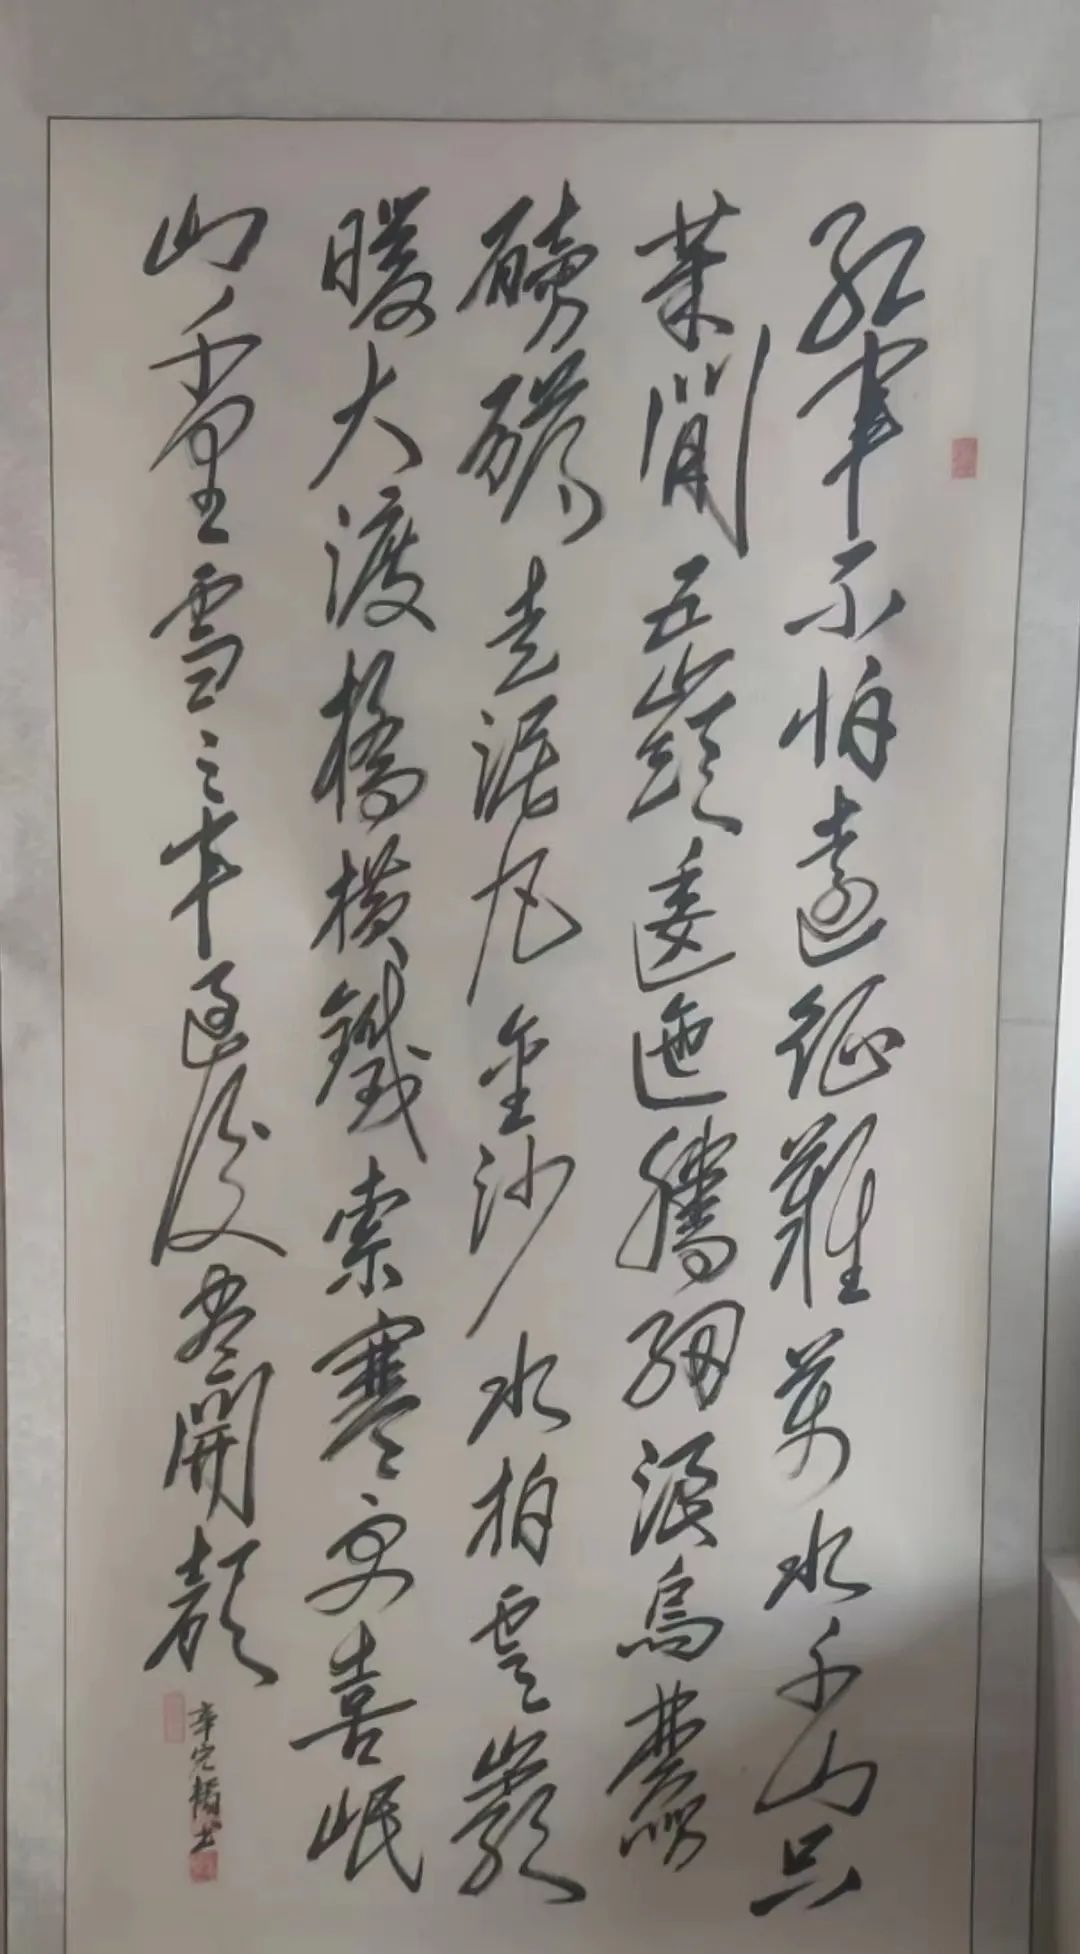 紅軍不怕遠征難萬水千山只
等閒五嶺逶迤騰細浪烏蒙
磅礴走泥丸金沙水拍雲巖
暖大渡橋橫鐵索寒更喜岷
山千里雪三軍過後盡開顏